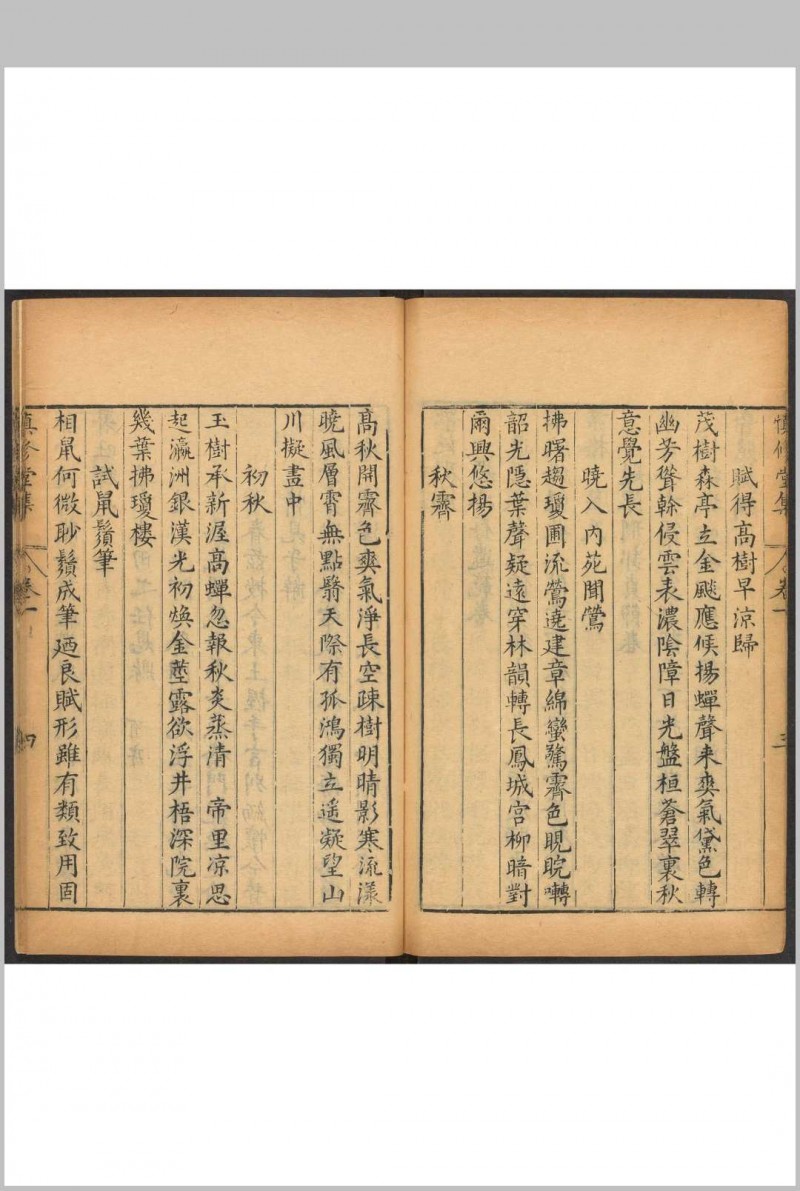 慎修堂集 卷一 三
賦得高樹早涼歸
茂樹森亭立金飈應候揚蟬聲来爽氣黛色轉
幽芳聳幹侵雲表濃陰障日光盤桓蒼翠裏秋
意覺先長
曉入内苑聞鶯
拂曙趨瓊圃流鶯遶建章綿蠻驚霽色睍睆囀
韶光隱葉聲疑遠穿林韻轉長鳳城宫柳暗對
爾興悠揚
秋霽
高秋開霽色爽氣淨長空疎樹明晴影寒流漾
曉風層霄無點翳天際有孤鴻獨立遥凝望山
川擬畫中
初秋
玉樹承新渥高蟬忽報秋炎蒸清 帝里凉思
起瀛洲銀漢光初煥金莖露欲浮井梧深院裏
幾葉拂瓊樓
試鼠鬚筆
相鼠何微眇鬚成筆廼良賦形雖有類致用固
慎修堂集 卷一 四